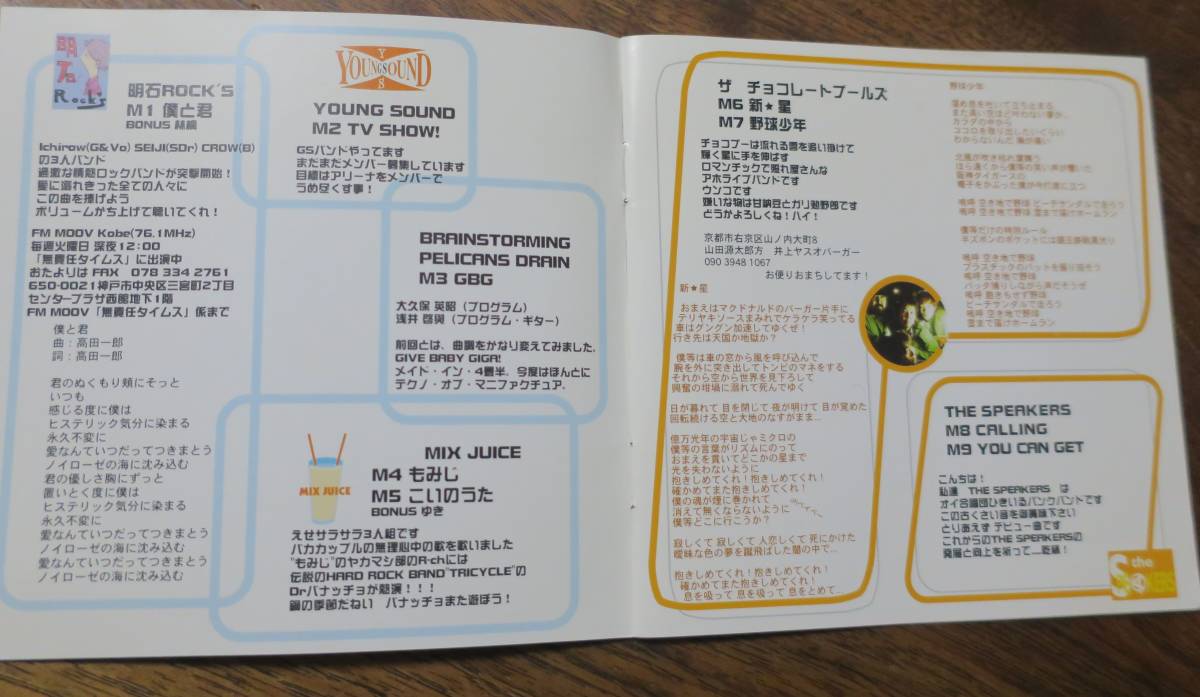 BATO
Rock's
明石ROCK'S
M1 僕と君
Ichirow(G&Vo) SEIJI(SDr) CROW(B)
の3人バンド
過激な情熱ロックバンドが突撃開始!
愛に溺れきった全ての人々に
この曲を捧げよう
ボリュームかち上げて聴いてくれ!
FM MOOV Kobe(76.1MHz)
毎週火曜日 深夜12:00
「無責任タイムス」に出演中
おたよりは FAX 078 334 2761
650-0021神戸市中央区三宮町2丁目
センタープラザ西館地下1階
FM MOOV「無責任タイムス」係まで
僕と君
曲:高田一郎
詞:高田一郎
君のぬくもり頬にそっと
いつも
感じる度に僕は
ヒステリック気分に染まる
永久不変に
愛なんていつだってつきまとう
ノイローゼの海に沈み込む
君の優しさ胸にずっと
置いとく度に僕は
ヒステリック気分に染まる
永久不変に
愛なんていつだってつきまとう
ノイローゼの海に沈み込む
愛なんていつだってつきまとう
ノイローゼの海に沈み込む
Y
YOUNGSOUND
S
YOUNG SOUND
M2 TV SHOW!
GSバンドやってます
まだまだメンバー募集しています
目標はアリーナをメンバーで
うめ尽くす事!
BRAINSTORMING
PELICANS DRAIN
M3 GBG
大久保 英昭(プログラム)
浅井 啓與(プログラム・ギター)
前回とは、曲調をかなり変えてみました。
GIVE BABY GIGA!
メイド・イン・4畳半。今度はほんとに
テクノ・オブ・マニファクチュア。
MIX JUICE
MIX JUICE
M4 もみじ
M5 こいのうた
BONUS ゆき
えせサラサラ3人組です
バカカップルの無理心中の歌を歌いました
"もみじ"のヤカマシ部のR-chには
伝説のHARD ROCK BAND"TRICYCLE"の
Drバナッチョが怒演!!!
鍋の季節だねい バナッチョまた遊ぼう!
ザ チョコレートプールズ
M6 新★星
M7 野球少年
チョコプーは流れる雲を追い掛けて
輝く星に手を伸ばす
ロマンチックで照れ屋さんな
アホライブバンドです
ウンコです
嫌いな物は甘納豆とガリ勉野郎です
どうかよろしくね!ハイ!
京都市右京区山ノ内大町8
山田源太郎方 井上ヤスオバーガー
090 3948 1067
お便りおまちしてます!
新★星
おまえはマクドナルドのバーガー片手に
テリヤキソースまみれでケラケラ笑ってる
車はグングン加速してゆくぜ!
行き先は天国か地獄か?
僕等は車の窓から風を呼び込んで
腕を外に突き出してトンビのマネをする
それから空から世界を見下ろして
興奮の坩堝に溺れて死んでゆく
日が暮れて 目を閉じて 夜が明けて 目が覚めた
回転続ける空と大地のなすがまま…
億万光年の宇宙じゃミクロの
僕等の言葉がリズムにのって
おまえを貫いてどこかの星まで
光を失わないように
抱きしめてくれ!抱きしめてくれ!
確かめてまた抱きしめてくれ!
僕の魂が煙に巻かれて
消えて無くならないように
僕等どこに行こうか?
寂しくて 寂しくて 人恋しくて 死にかけた
曖昧な色の夢を蹴飛ばした闇の中で…
抱きしめてくれ!抱きしめてくれ!
確かめてまた抱きしめてくれ!
息を吸って 息を吸って 息をとめて…
野球少年
カラダの中から
ココロを取り出したいぐらい
わからないんだ 胸が痛い
北風が吹き枯れ葉舞う
ほら遠くから僕等の笑い声が響いた
阪神タイガースの
帽子をかぶった僕が今打席に立つ
嗚呼 空き地で野球 ビーチサンダルで走ろう
嗚呼 空き地で野球 雲まで届けホームラン
僕等だけの特別ルール
嗚呼 空き地で野球
プラスチックのバットを振り回そう
嗚呼 空き地で野球
バッタ捕りしながら声だそうぜ
嗚呼 飽きもせず野球
ビーチサンダルで走ろう
嗚呼 空き地で野球
雲まで届けホームラン
THE SPEAKERS
M8 CALLING
M9 YOU CAN GET
こんちは!
私達 THE SPEAKERS は
オイ合唱団ひきいるパンクバンドです
この古くさい音を御賞味下さい
とりあえず デビュー曲です
これからのTHE SPEAKERSの
発展と向上を祈って…乾杯!
the